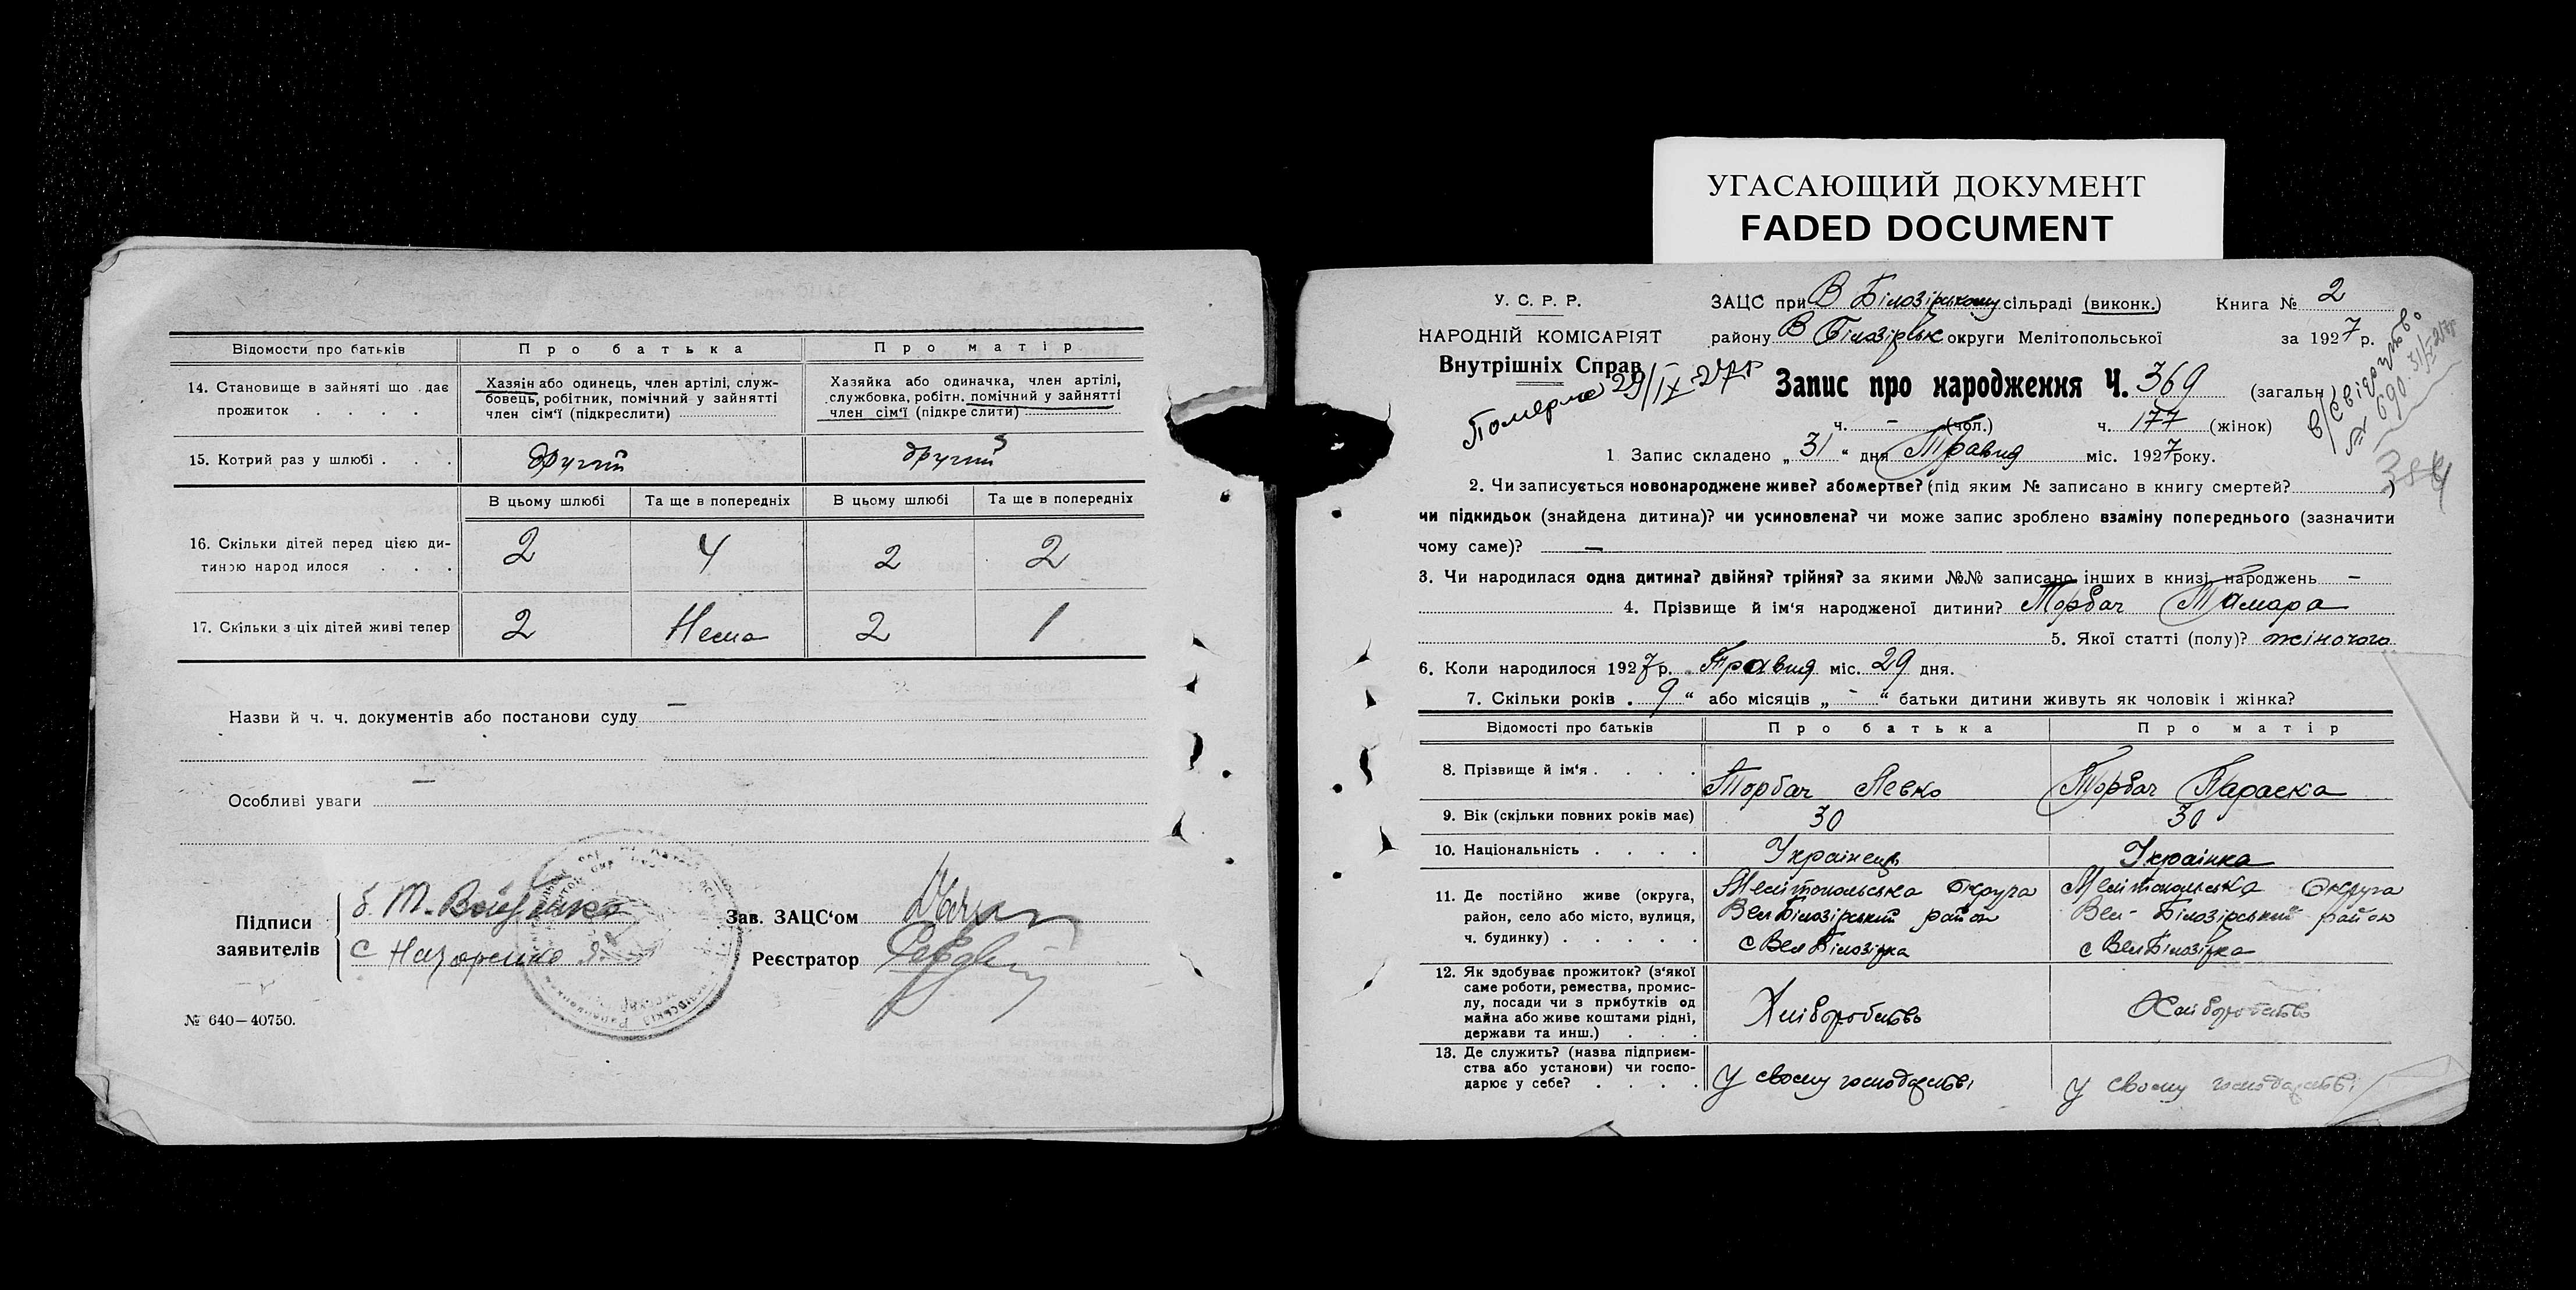 Відомости про батьків Про батька Про матір
14. Становище в зайняті що дає прожиток . . . .
Хазяїн або одинець, член артілі, служ-
бовець, робітник, помічний у зайнятті
член сім'ї (підкреслити)
Хазяйка або одиначка, член артілі,
службовка, робітн. помічний у зайнятті
член сім'ї (підкреслити)
15. Котрий раз у шлюбі . . . другий другий
В цьому шлюбі Та ще в попередніх В цьому шлюбі Та ще в попередніх
16. Скільки дітей перед цією ди-
тиною народилося . . . 2 4 2 2
17. Скільки з ціх дітей живі тепер 2 Нема 2 1
Назви й ч. ч. документів або постанови суду —
Особливі уваги —
Підписи
заявителів
б. Т. Войтенко
с Назаренко Я.
Зав. ЗАЦС'ом
Реєстратор
№ 640—40750.
УГАСАЮЩИЙ ДОКУМЕНТ
FADED DOCUMENT
У. С. Р. Р.
НАРОДНІЙ КОМІСАРІЯТ
Внутрішніх Справ
Померла 29/IX-27р
ЗАЦС при В Білозірському сільраді (виконк.) Книга № 2
району В Білозірськ округи Мелітопольської за 1927 р.
Запис про народження Ч. 369 (загальн.)
ч. - (чол.) ч. 177 (жінок)
в/свідоцтво
№ 690. 31/V 27р
1 Запис складено „31“ дня Травня міс. 1927 року.
2. Чи записується новонароджене живе? або мертве? (під яким № записано в книгу смертей?)
чи підкидьок (знайдена дитина)? чи усиновлена? чи може запис зроблено взаміну попереднього (зазначити
чому саме)? —
3. Чи народилася одна дитина? двійня? трійня? за якими №№ записано інших в книзі народжень —
4. Прізвище й ім'я народженої дитини? Торбач Тамара
5. Якої статті (полу)? жіночого
6. Коли народилося 1927 р. Травня міс. 29 дня.
7. Скільки років . 9 “ або місяців „ - “ батьки дитини живуть як чоловік і жінка?
Відомості про батьків Про батька Про матір
8. Прізвище й ім'я . . . . Торбач Левко Торбач Параска
9. Вік (скільки повних років має) 30 30
10. Національність . . . . Українець Українка
11. Де постійно живе (округа,
район, село або місто, вулиця,
ч. будинку) . . . . .
Мелітопольська Округа
Вел Білозірський район
с Вел Білозірка
Мелітопольська Округа
Вел- Білозірський район
с Вел Білозірка
12. Як здобуває прожиток? (з'якої
саме роботи, ремества, промис-
лу, посади чи з прибутків од
майна або живе коштами рідні,
держави та инш.) . . .
Хліборобство Хліборобство
13. Де служить? (назва підприєм-
ства або установи) чи госпо-
дарює у себе? . . . .
У своему господарстві У своему господарстві